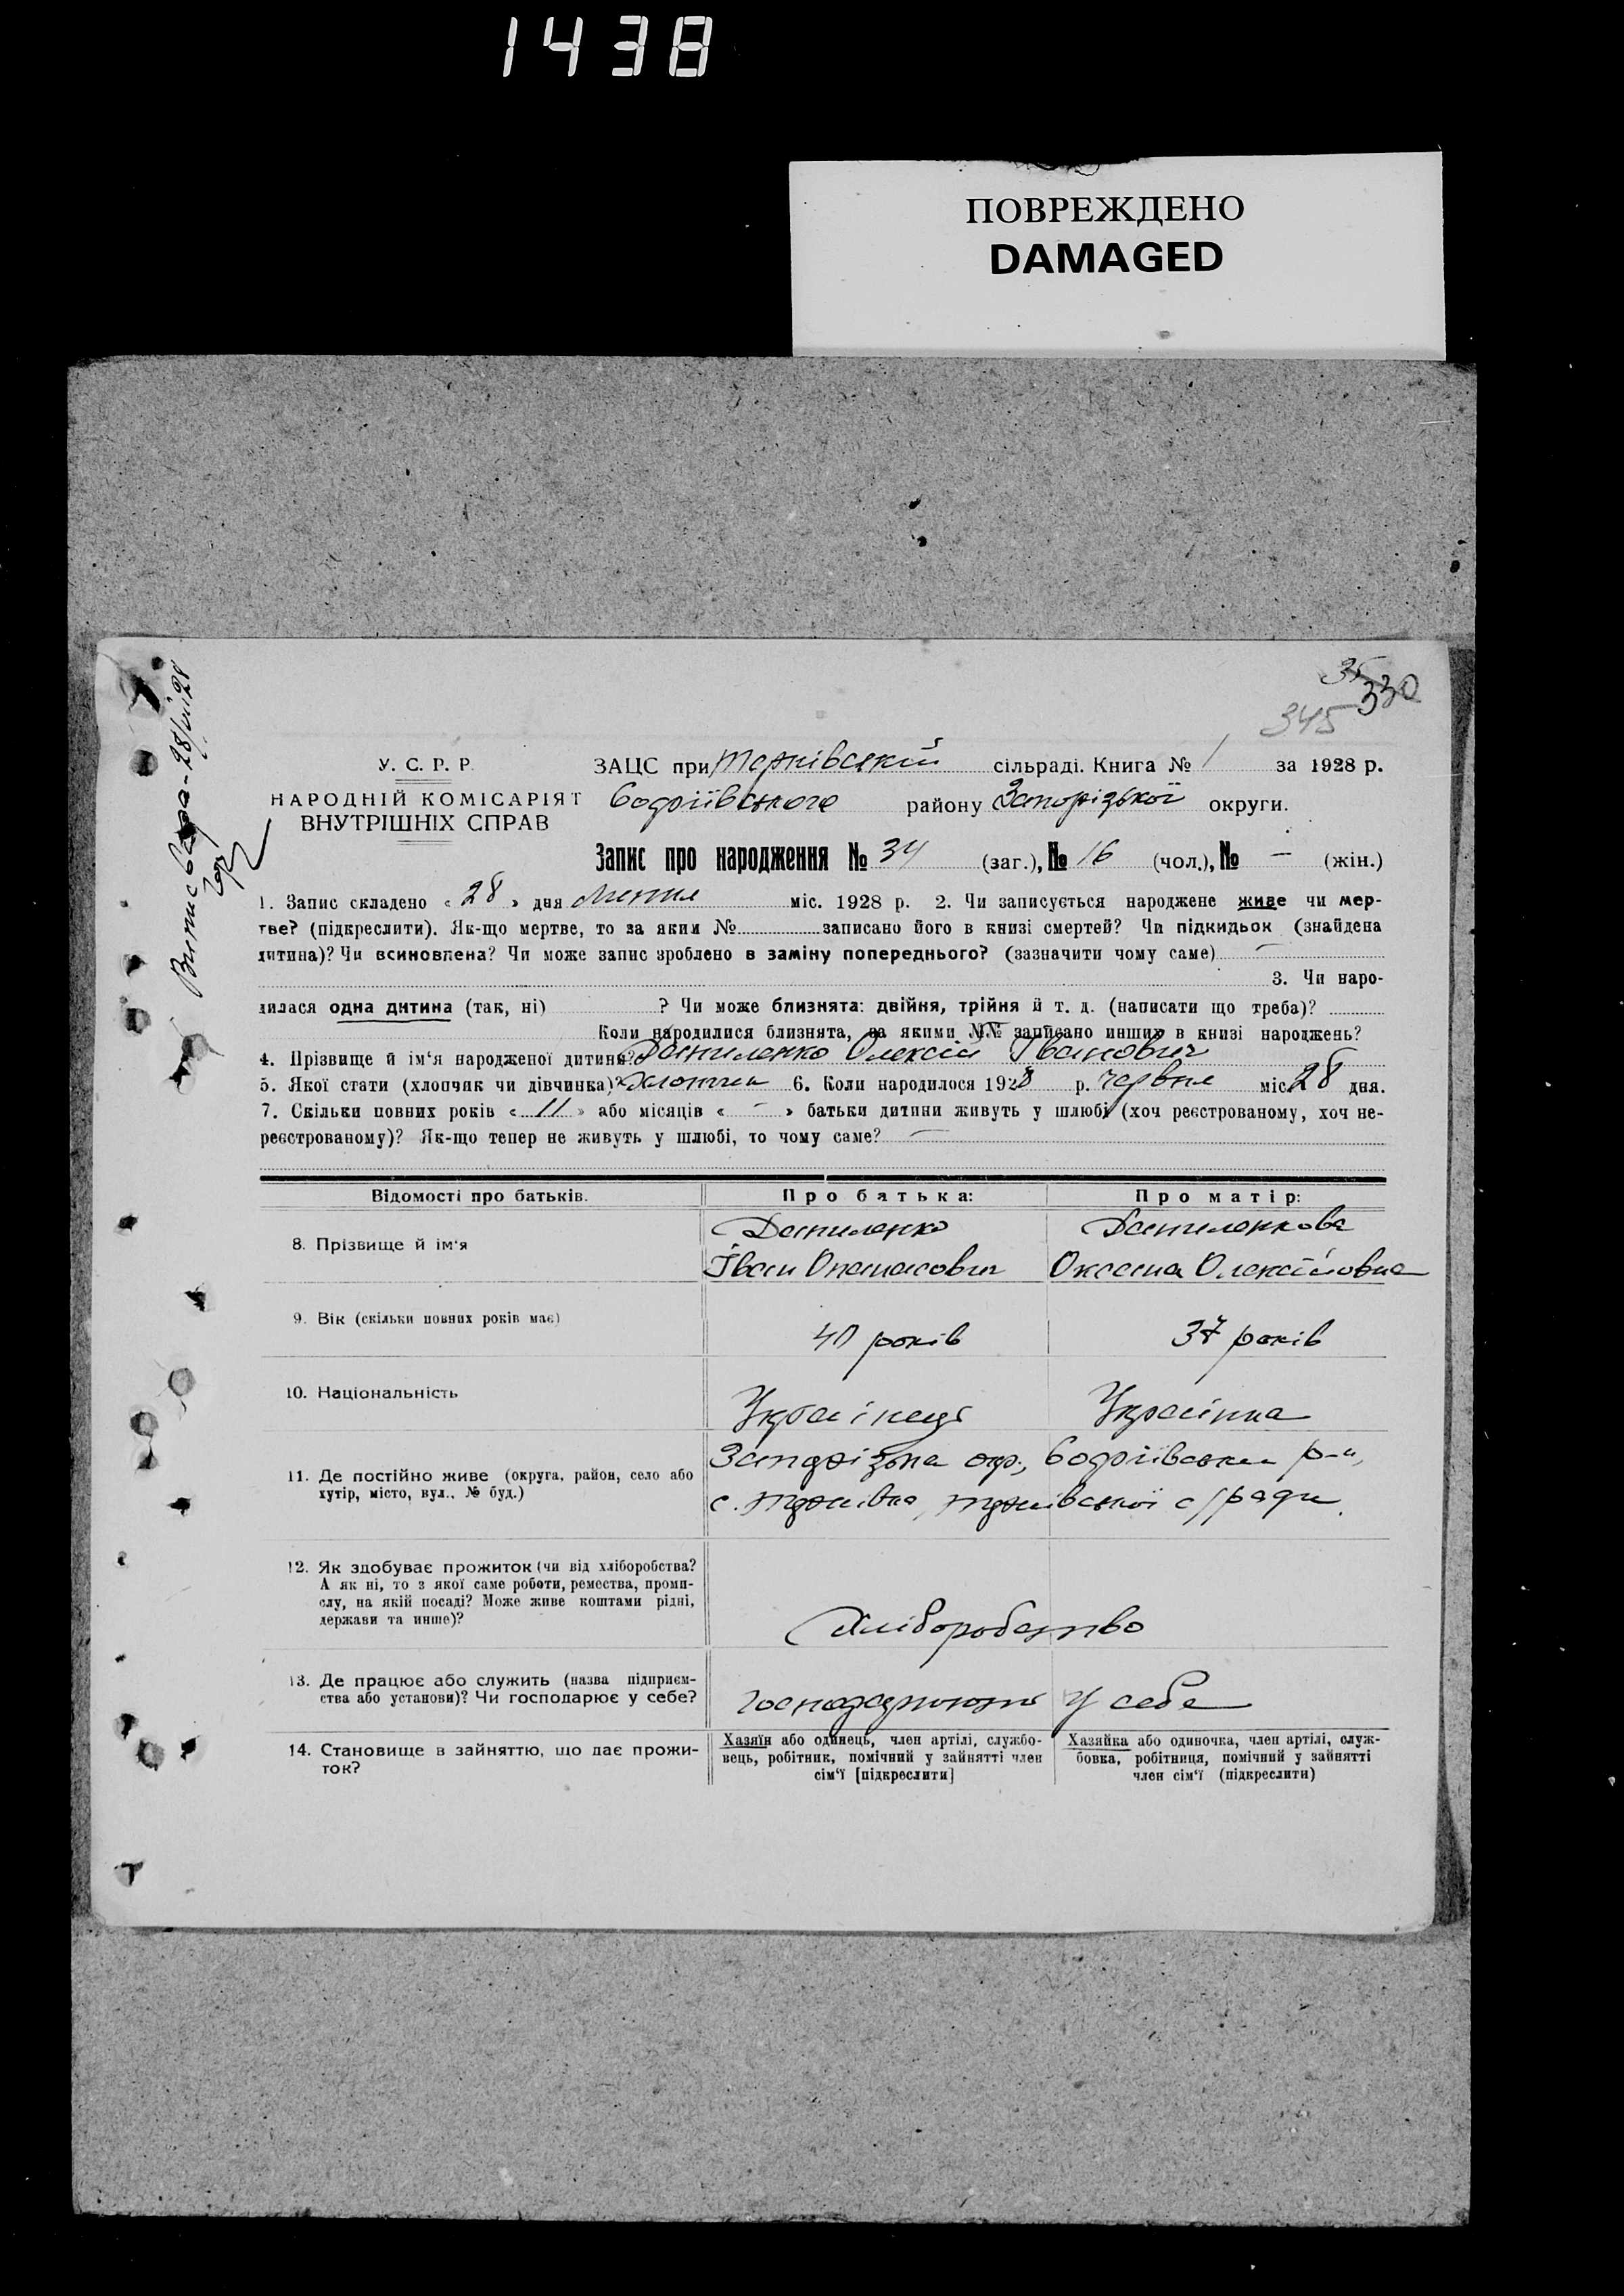 1438
ПОВРЕЖДЕНО
DAMAGED
35
330
345
Виписано - 28/VII 28
У. С. Р. Р.
НАРОДНІЙ КОМІСАРІЯТ
ВНУТРІШНІХ СПРАВ
ЗАЦС при сільраді. Книга № 1 за 1928 р.
району Запорізької округи.
Запис про народження № 34 (заг.), № 16 (чол.), № — (жін.)
1. Запис складено « 28 » дня Липня міс. 1928 р. 2. Чи записується народжене живе чи мер-
тве? (підкреслити). Як-що мертве, то за яким № записано його в книзі смертей? Чи підкидьок (знайдена
дитина)? Чи всиновлена? Чи може запис зроблено в заміну попереднього? (зазначити чому саме) —
3. Чи наро-
дилася одна дитина (так, ні) ? Чи може близнята: двійня, трійня й т. д. (написати що треба)?
Коли народилися близнята, за якими №№ записано инших в книзі народжень?
4. Прізвище й ім'я народженої дитини? Даниленко Олексій Іванович
5. Якої стати (хлопчик чи дівчинка)? Хлопчик 6. Коли народилося 1928 р. червня міс. 28 дня.
7. Скільки повних років « 11 » або місяців « - » батьки дитини живуть у шлюбі (хоч реєстрованому, хоч не-
реєстрованому)? Як-що тепер не живуть у шлюбі, то чому саме? —
Відомості про батьків. Про батька: Про матір:
8. Прізвище й ім'я
Даниленко Даниленкова
Іван Опанасович Оксана Олексіївна
9. Вік (скільки повних років має)
40 років 37 років
10. Національність
Українець Українка
11. Де постійно живе (округа, район, село або
хутір, місто, вул., № буд.)
Запорізька окр., р-н,
с. с/ради.
12. Як здобуває прожиток (чи від хліборобства?
А як ні, то з якої саме роботи, ремества, проми-
слу, на якій посаді? Може живе коштами рідні,
держави та инше)?
Хліборобство
13. Де працює або служить (назва підприєм-
ства або установи)? Чи господарює у себе?
Господарюють у себе
14. Становище в зайняттю, що дає прожи-
ток?
Хазяїн або одинець, член артілі, службо-
вець, робітник, помічний у зайнятті член
сім'ї [підкреслити]
Хазяйка або одиночка, член артілі, служ-
бовка, робітниця, помічний у зайнятті
член сім'ї (підкреслити)